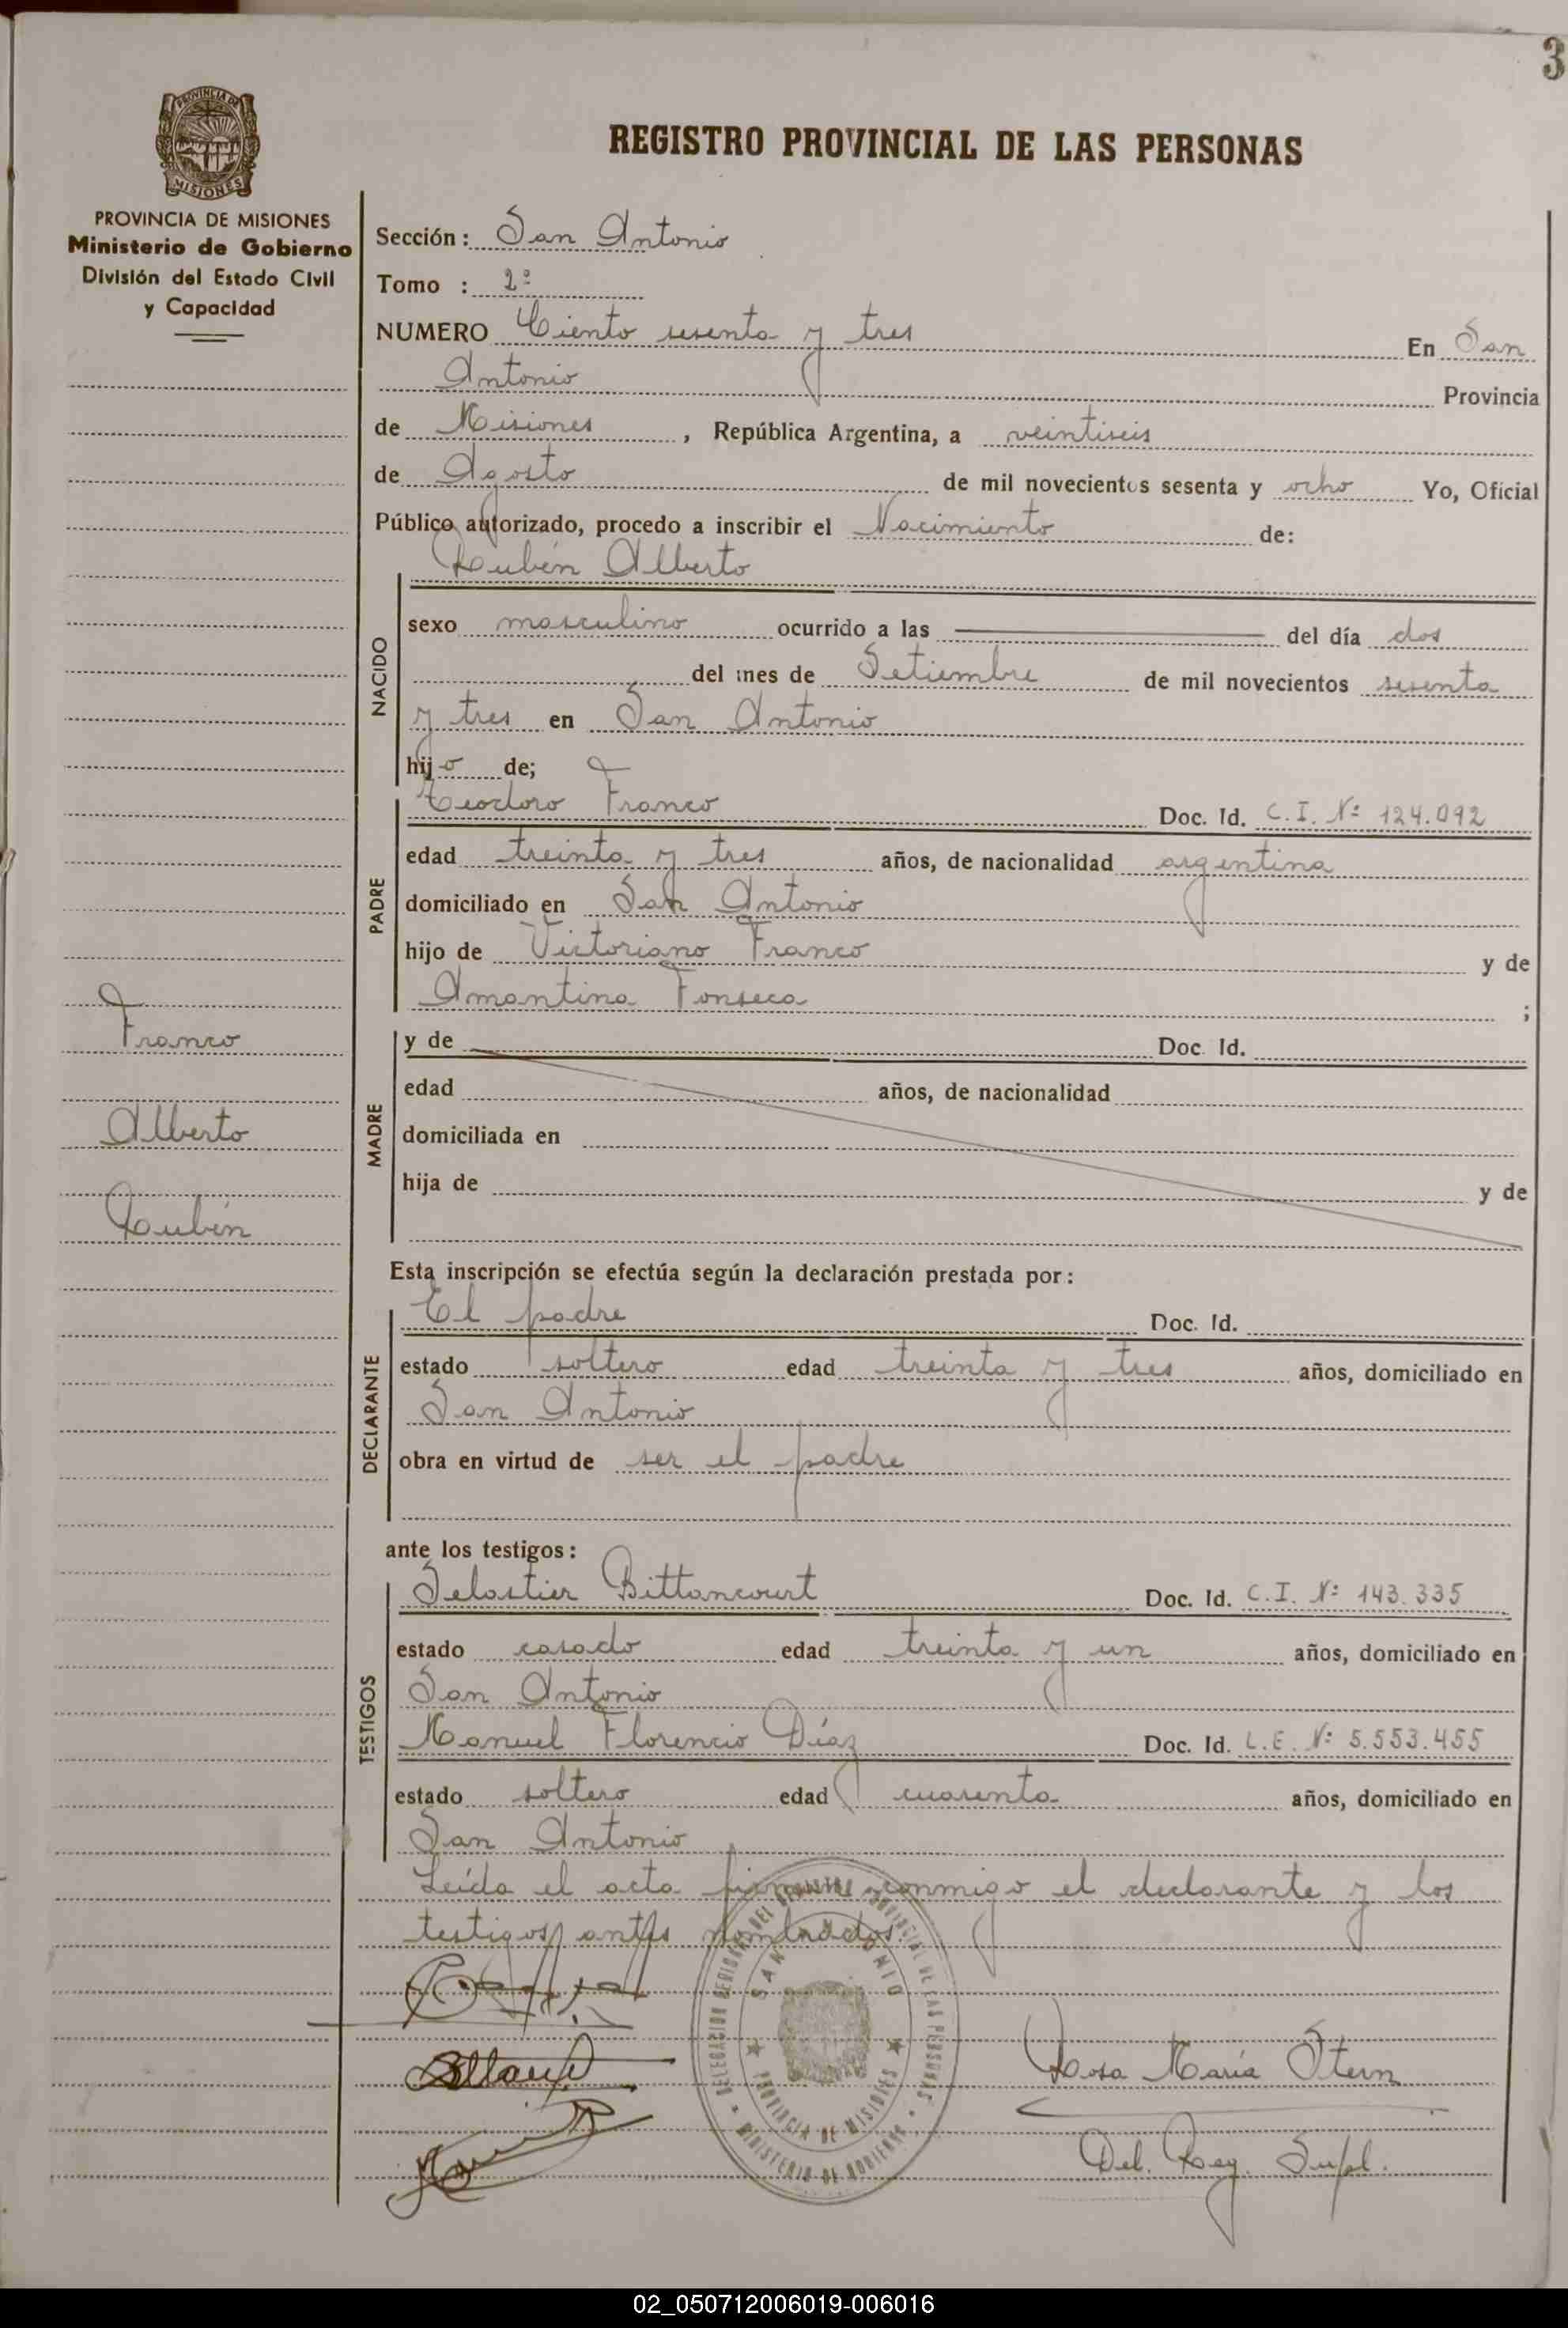 3
REGISTRO PROVINCIAL DE LAS PERSONAS
PROVINCIA DE MISIONES
Ministerio de Gobierno
División del Estado Civil
y Capacidad
Sección: San Antonio
Tomo : 2º
NUMERO Ciento sesenta y tres En San
Antonio Provincia
de Misiones, República Argentina, a veintiseis
de Agosto de mil novecientos sesenta y ocho Yo, Oficial
Público autorizado, procedo a inscribir el Nacimiento de:
Rubén Alberto
NACIDO
sexo masculino ocurrido a las del día dos
del mes de Setiembre de mil novecientos sesenta
y tres en San Antonio
hijo de;
PADRE
Teodoro Franco Doc. Id. C.I. Nº 124.092
edad treinta y tres años, de nacionalidad argentina
domiciliado en San Antonio
hijo de Victoriano Franco y de
Amantina Fonseca ;
Franco
Alberto
Rubén
MADRE
y de Doc. Id.
edad años, de nacionalidad
domiciliada en
hija de y de
Esta inscripción se efectúa según la declaración prestada por:
DECLARANTE
El padre Doc. Id.
estado soltero edad treinta y tres años, domiciliado en
San Antonio
obra en virtud de ser el padre
ante los testigos:
TESTIGOS
Selastier Bittancourt Doc. Id. C.I. Nº 143.335
estado casado edad treinta y un años, domiciliado en
San Antonio
Manuel Florencio Díaz Doc. Id. L.E. Nº 5.553.455
estado soltero edad cuarenta años, domiciliado en
San Antonio
Leída el acta firman conmigo el declarante y los
testigos antes nombrados.
DELEGACION REGIONAL DEL REGISTRO PROVINCIAL DE LAS PERSONAS
SAN ANTONIO
PROVINCIA DE MISIONES
MINISTERIO DE GOBIERNO
Rosa María Stern
Del. Reg. Supl.
02_050712006019-006016